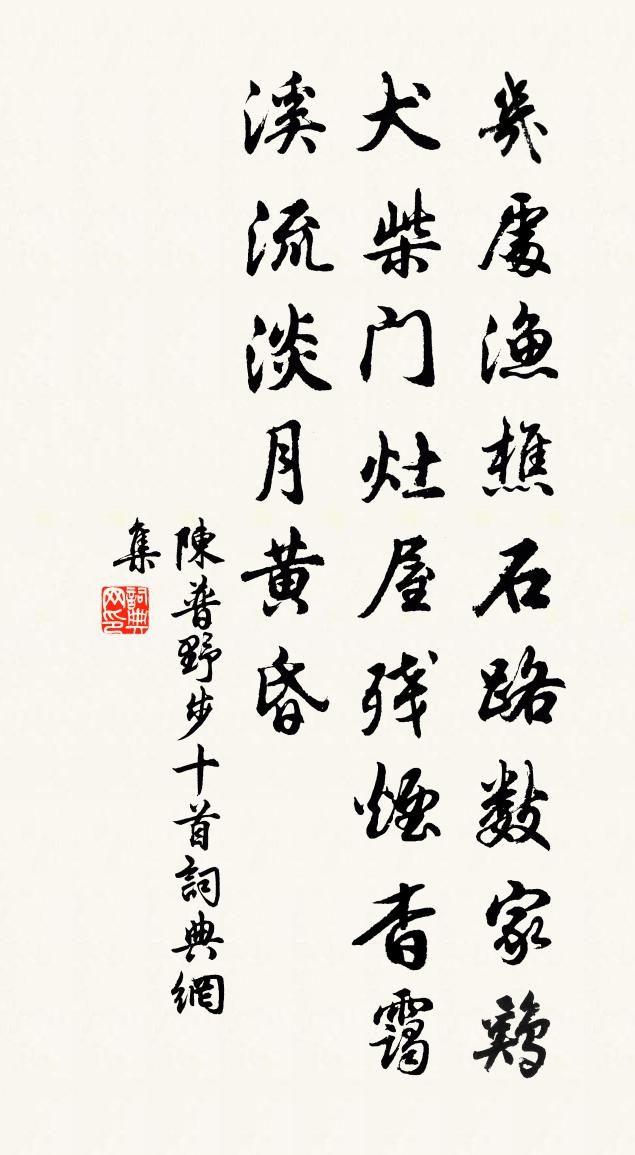 幾處漁樵石路数家鷄
犬柴门灶屋残煙杳靄
溪流淡月黄昏
陳普野步十首詞典網
集
詞典
网印